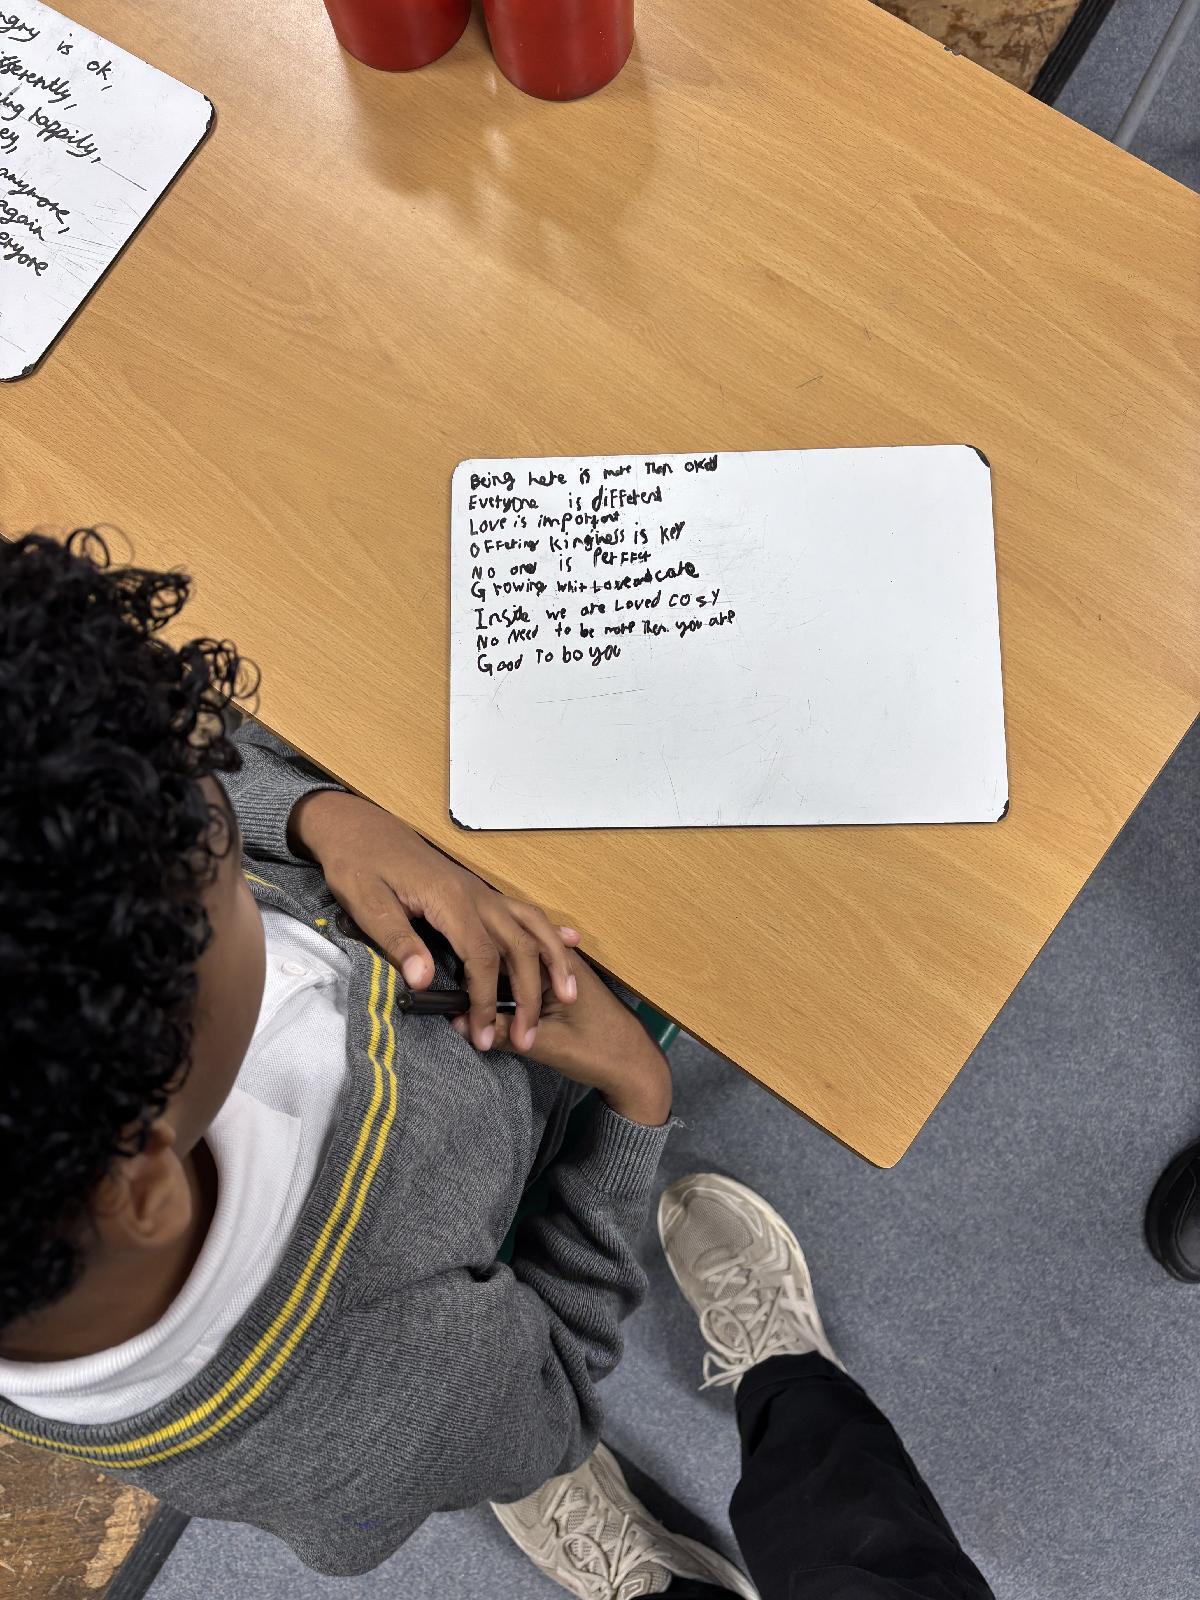 ngry is ok,
fferently,
ing happily,
ey,
anymore,
again
eryone
Being here is more Then okay
Everyone is different
Love is important
Offering kingness is key
No one is Perffet
Growing whit Love and care
Inside we are Loved cosy
No Need to be more Then you are
Good To bo you